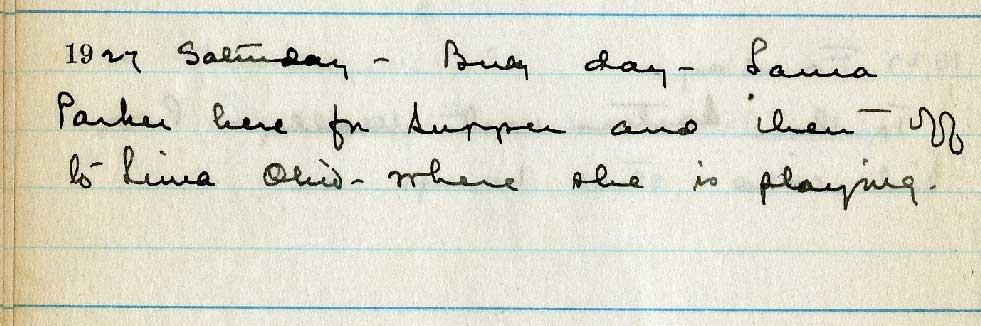 1927 Saturday - Busy day - Laura
Parker here for supper and then off
to Lima Ohio - where she is playing.